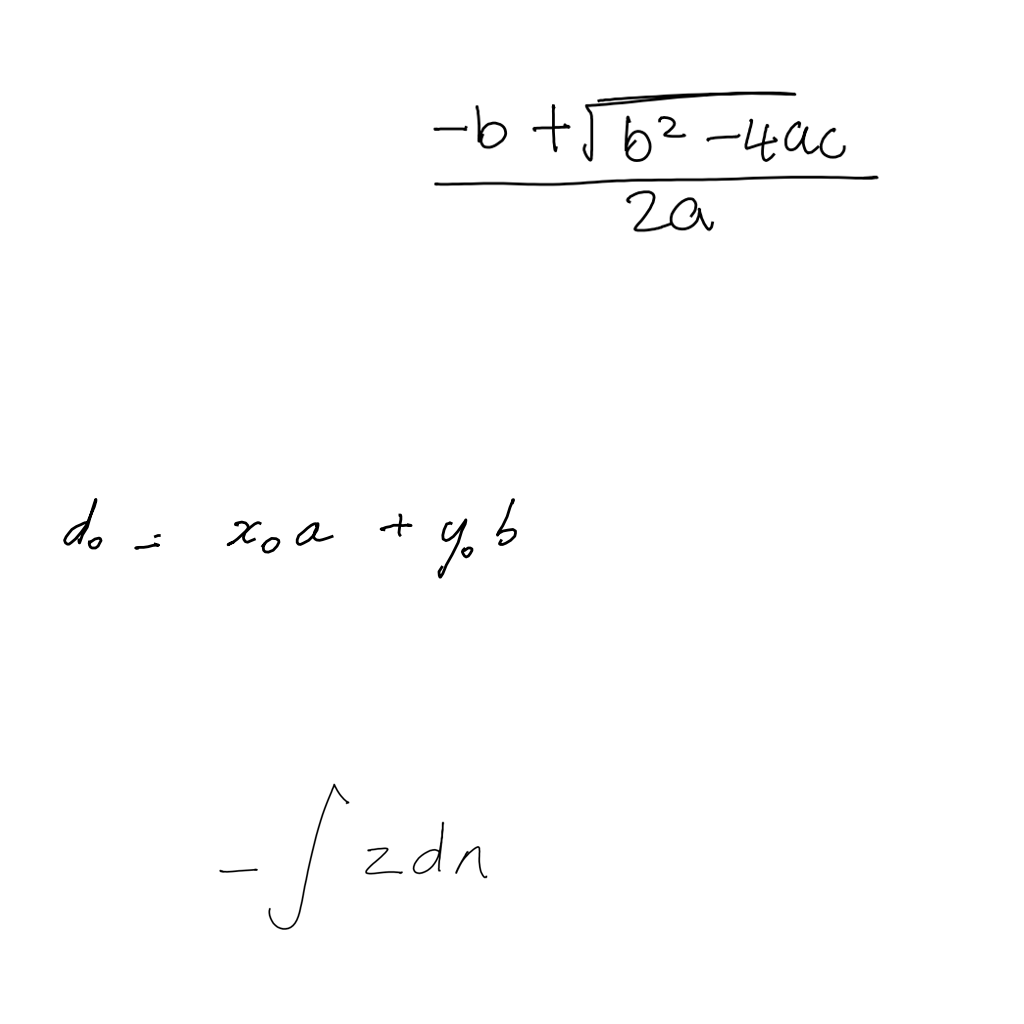 \frac{-b + \sqrt{b^2 - 4ac}}{2a}
d_0 = x_0 a + y_0 b
-\int z dn